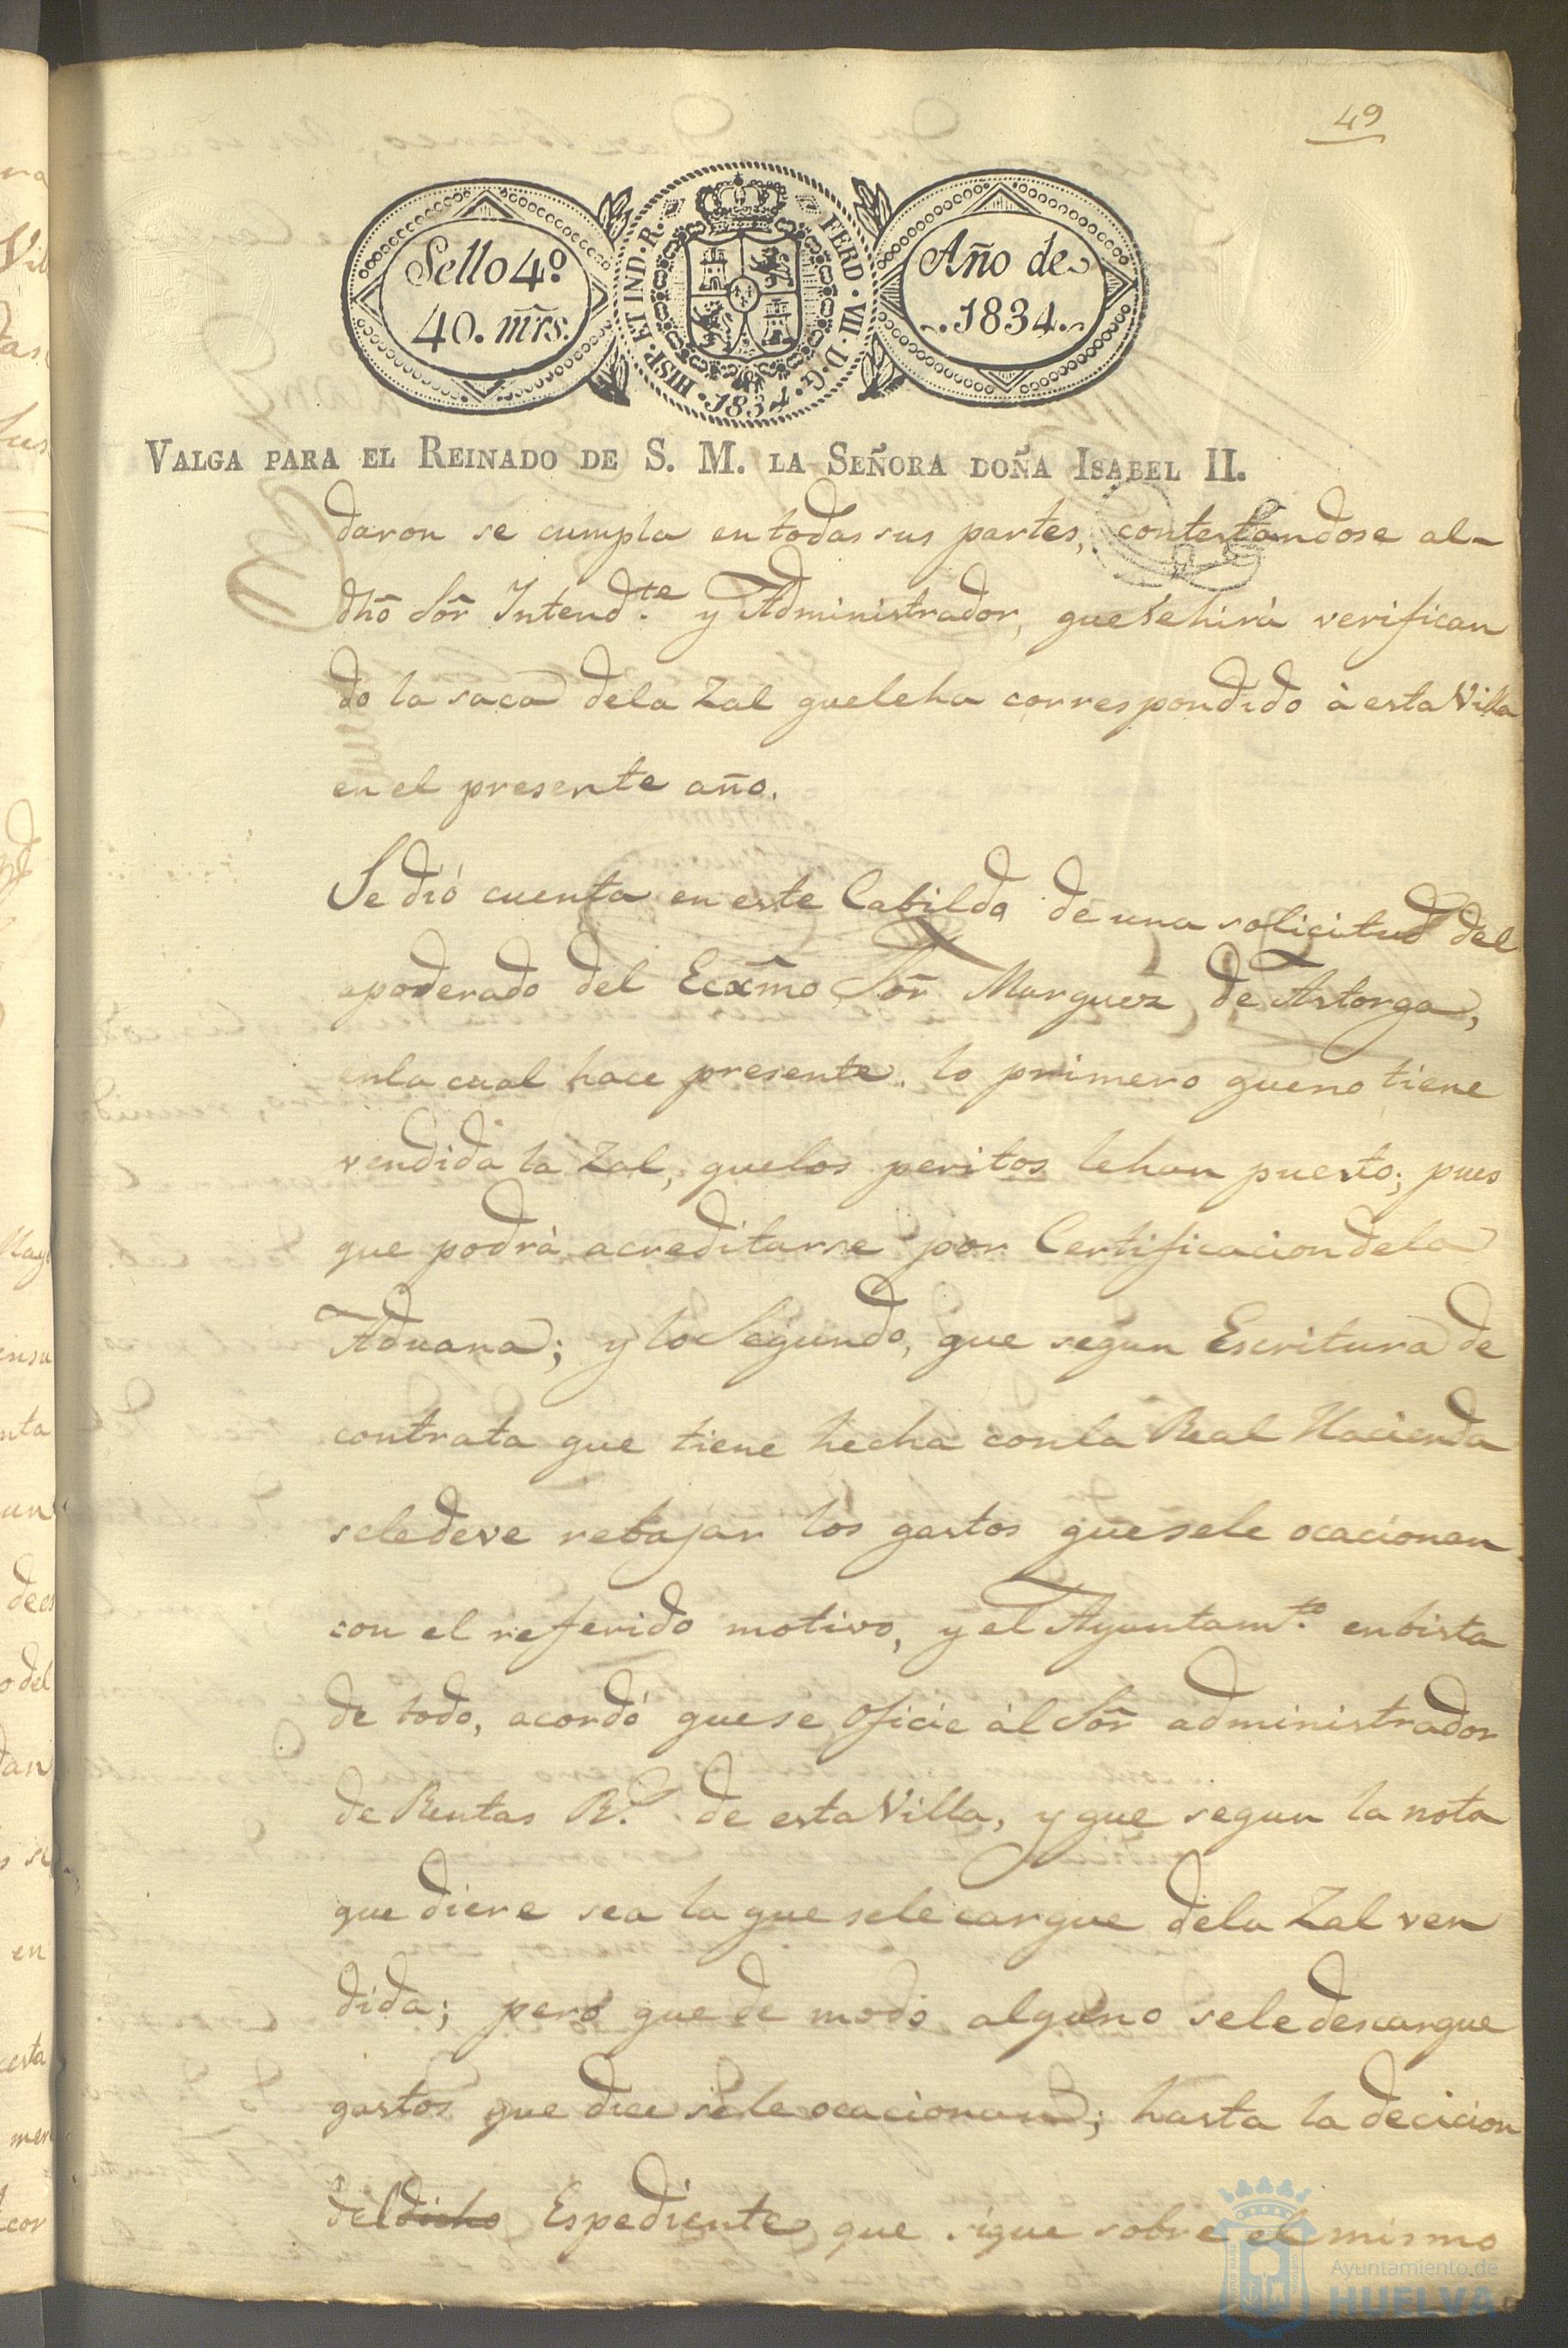 49
Sello 4º
40. mr̃s.
HISP. ET IND. R. FERD. VII. D. G. 1834.
Año de
1834.
VALGA PARA EL REINADO DE S. M. LA SEÑORA DOÑA ISABEL II.
daron se cumpla en todas sus partes, contestandose al-
dhõ Sõr Intend.te y Administrador, que se hirá verifican
do la saca dela Zal que le ha correspondido à esta Villa
en el presente año.
Se dió cuenta en este Cabildo de una solicitud del
apoderado del Ecxm̃o Sõr Marquez de Astorga,
enla cual hace presente. lo primero que no tiene
vendida la Zal, que los peritos le han puesto; pues
que podrà acreditarse por Certificacion dela
Aduana; y lo Segundo, que segun Escritura de
contrata que tiene hecha con la Real Hacienda
sele deve rebajar los gastos que sele ocacionen
con el referido motivo, y el Ayuntamto. en bista
de todo, acordó que se oficie àl Sõr administrador
de Rentas Rs. de esta Villa, y que segun la nota
que diere sea la que sele cargue dela Zal ven
dida; pero que de modo alguno sele descargue
gastos que dice se le ocacionan; hasta la decicion
del dicho Espediente que sigue sobre el mismo
Ayuntamiento de
HUELVA